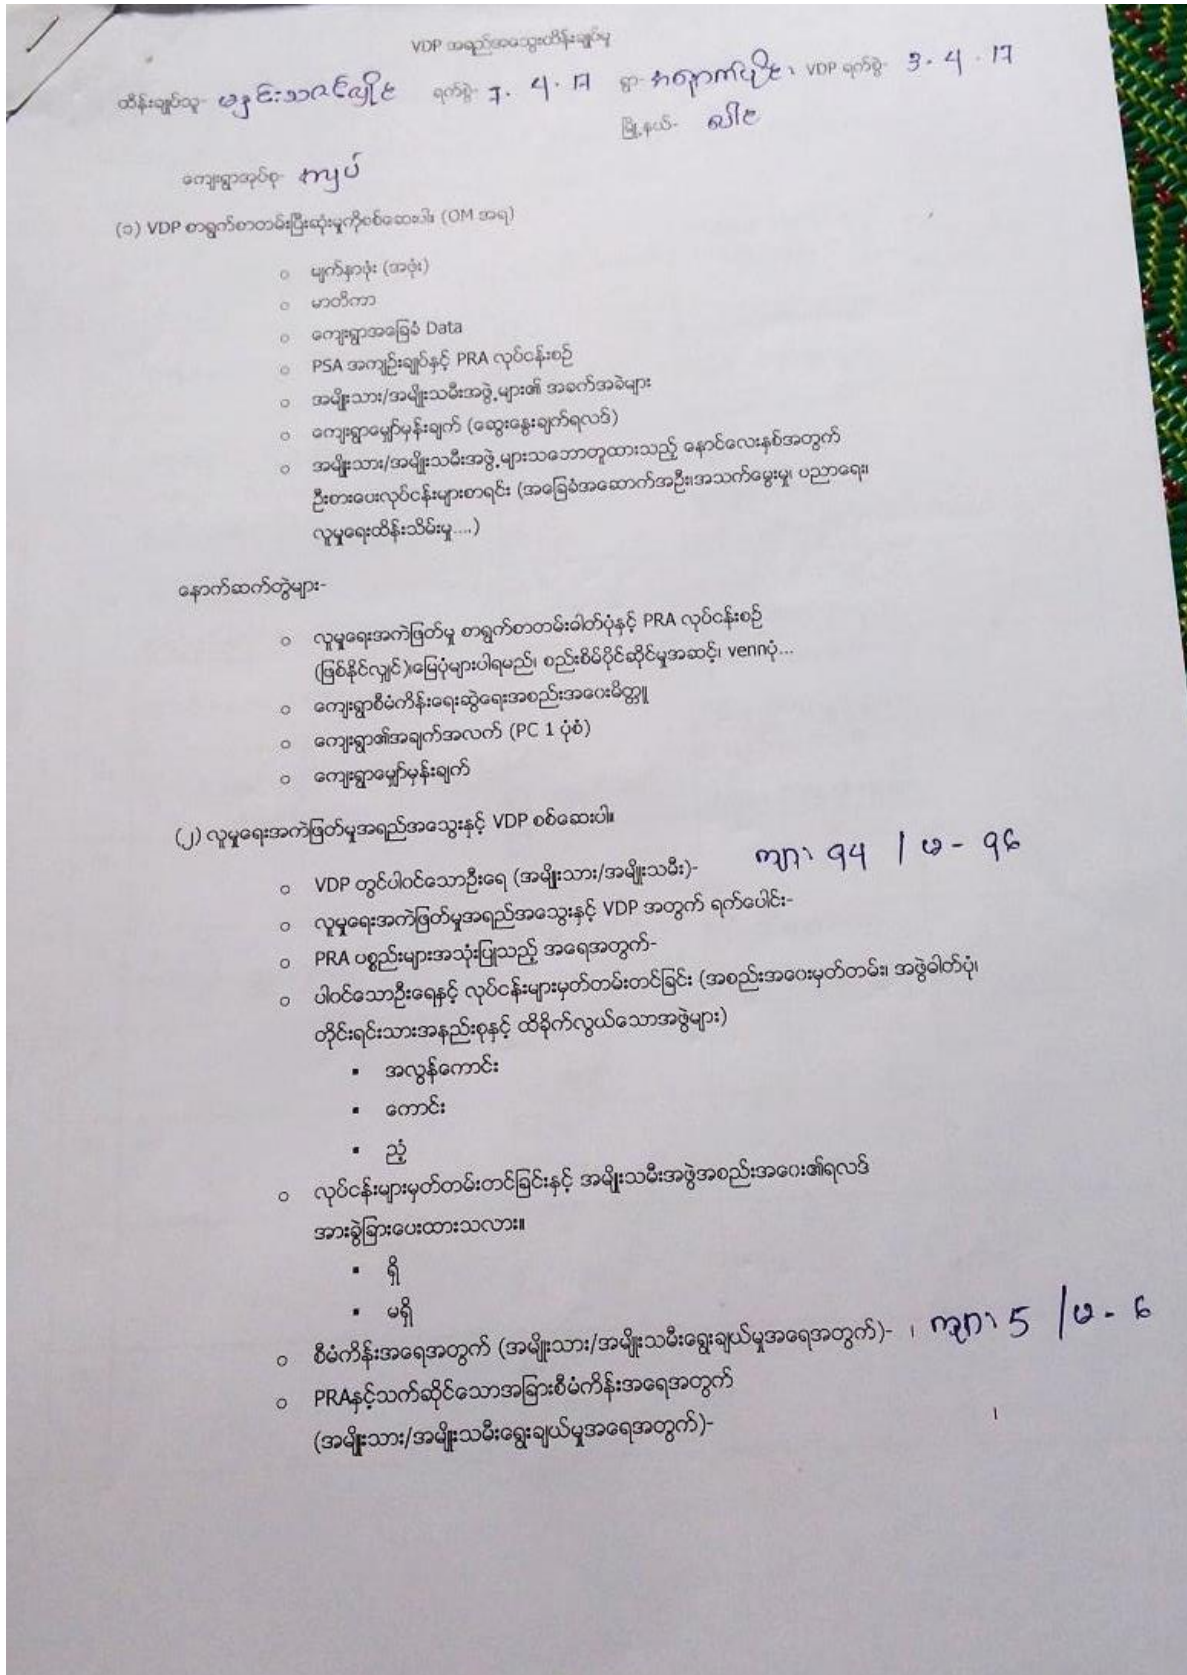 VDP အရည်အသွေးထိန်းချုပ်မှု
ထိန်းချုပ်သူ- မနှင်းသဇင်လှိုင် ရက်စွဲ- 7. 4. 17 ရွာ- အနောက်ပိုင်း VDP ရက်စွဲ- 3. 4. 17
မြို့နယ်-
ကျေးရွာအုပ်စု- ကျပ်
(၁) VDP စာရွက်စာတမ်းပြီးဆုံးမှုကိုစစ်ဆေးပါ။ (OM အရ)
○ မျက်နှာဖုံး (အဖုံး)
○ မာတိကာ
○ ကျေးရွာအခြေခံ Data
○ PSA အကျဉ်းချုပ်နှင့် PRA လုပ်ငန်းစဉ်
○ အမျိုးသား/အမျိုးသမီးအဖွဲ့များ၏ အခက်အခဲများ
○ ကျေးရွာမျှော်မှန်းချက် (ဆွေးနွေးချက်ရလဒ်)
○ အမျိုးသား/အမျိုးသမီးအဖွဲ့များသဘောတူထားသည့် နောင်လေးနှစ်အတွက်
ဦးစားပေးလုပ်ငန်းများစာရင်း (အခြေခံအဆောက်အဦး၊အသက်မွေးမှု၊ ပညာရေး၊
လူမှုရေးထိန်းသိမ်းမှု....)
နောက်ဆက်တွဲများ-
○ လူမှုရေးအကဲဖြတ်မှု စာရွက်စာတမ်းဓါတ်ပုံနှင့် PRA လုပ်ငန်းစဉ်
(ဖြစ်နိုင်လျှင်)၊မြေပုံများပါရမည်၊ စည်းစိမ်ပိုင်ဆိုင်မှုအဆင့်၊ vennပုံ...
○ ကျေးရွာစီမံကိန်းရေးဆွဲရေးအစည်းအဝေးမိတ္တူ
○ ကျေးရွာ၏အချက်အလက် (PC 1 ပုံစံ)
○ ကျေးရွာမျှော်မှန်းချက်
(၂) လူမှုရေးအကဲဖြတ်မှုအရည်အသွေးနှင့် VDP စစ်ဆေးပါ။
○ VDP တွင်ပါဝင်သောဦးရေ (အမျိုးသား/အမျိုးသမီး)- ကျား 94 / မ - 96
○ လူမှုရေးအကဲဖြတ်မှုအရည်အသွေးနှင့် VDP အတွက် ရက်ပေါင်း-
○ PRA ပစ္စည်းများအသုံးပြုသည့် အရေအတွက်-
○ ပါဝင်သောဦးရေနှင့် လုပ်ငန်းများမှတ်တမ်းတင်ခြင်း (အစည်းအဝေးမှတ်တမ်း၊ အဖွဲ့ဓါတ်ပုံ၊
တိုင်းရင်းသားအနည်းစုနှင့် ထိခိုက်လွယ်သောအဖွဲ့များ)
▪ အလွန်ကောင်း
▪ ကောင်း
▪ ညံ့
○ လုပ်ငန်းများမှတ်တမ်းတင်ခြင်းနှင့် အမျိုးသမီးအဖွဲ့အစည်းအဝေး၏ရလဒ်
အားခွဲခြားပေးထားသလား။
▪ ရှိ
▪ မရှိ
○ စီမံကိန်းအရေအတွက် (အမျိုးသား/အမျိုးသမီးရွေးချယ်မှုအရေအတွက်)- ၊ ကျား 5 / မ - 6
○ PRAနှင့်သက်ဆိုင်သောအခြားစီမံကိန်းအရေအတွက်
(အမျိုးသား/အမျိုးသမီးရွေးချယ်မှုအရေအတွက်)-